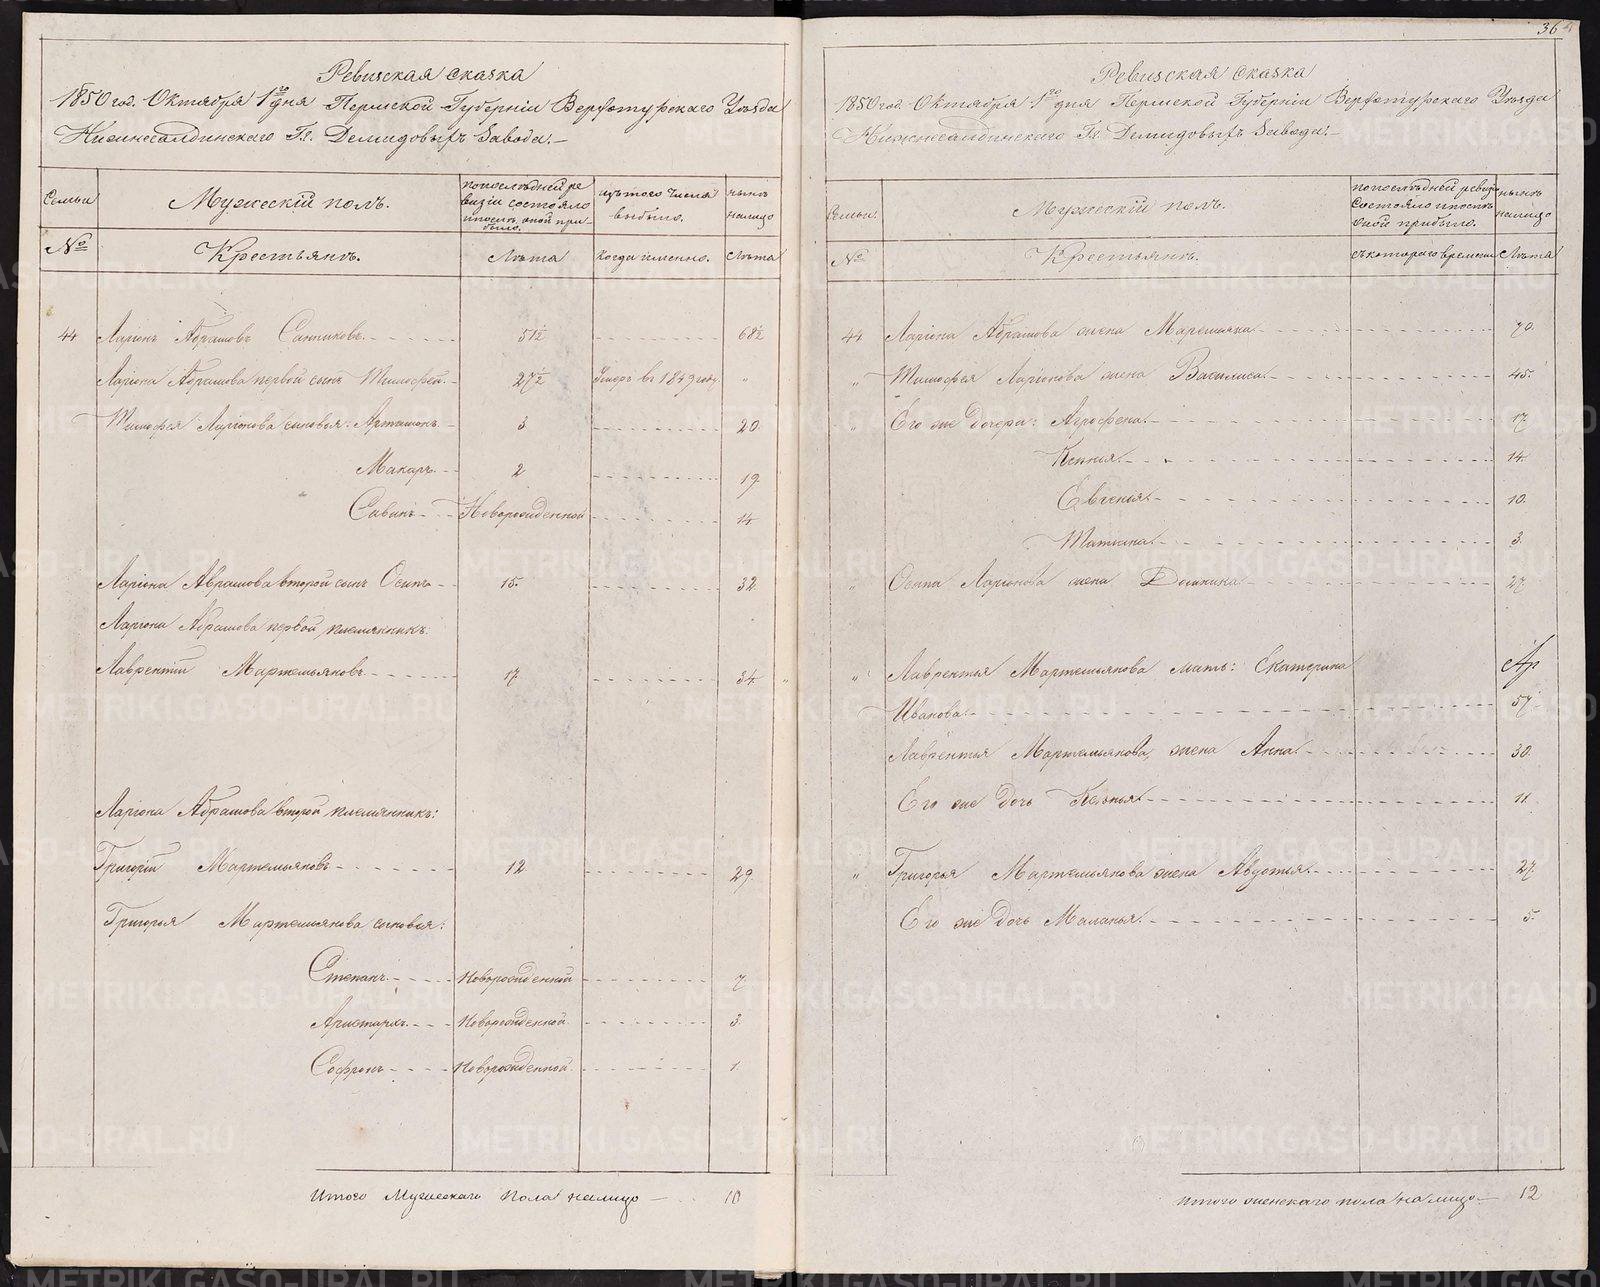 Ревизская сказка
1850 год. Октября 1го дня Пермской Губерніи Верхотурскаго Уѣзда
Нижнесалдинскаго Гг. Демидовыхъ Завода.
Семьи
Мужескій полъ.
по послѣдней ре
визіи состояло
и послѣ оной при-
было.
изъ того числа
выбыло.
нынѣ
налицо
№
Крестьянъ.
Лѣта
Когда именно.
Лѣта
44 Ларіонъ Абрамовъ Санниковъ. 51½ 68½
Ларіона Абрамова первой сынъ Тимофей. 27½ Умеръ въ 1849 году. "
Тимофея Ларіонова сыновья: Артамонъ 3 20
Макаръ 2 19
Савинъ Новорожденной 14
Ларіона Абрамова второй сынъ Осипъ 15. 32.
Ларіона Абрамова первой племянникъ:
Лаврентій Мартемьяновъ 17 34.
Ларіона Абрамова второй племянникъ:
Григорій Мартемьяновъ 12 29
Григорья Мартемьянова сыновья:
Степанъ Новорожденной 7
Аристархъ Новорожденной 3.
Софронъ Новорожденной 1
Итого Мужескаго Пола налицо 10
36
Ревизская сказка
1850 год. Октября 1го дня Пермской Губерніи Верхотурскаго Уѣзда
Нижнесалдинскаго Гг. Демидовыхъ Завода.
Семьи
Мужескій полъ.
по послѣдней ревизіи
состояло и послѣ
оной прибыло.
нынѣ
налицо
№
Крестьянъ.
съ котораго времени
Лѣта
44 Ларіона Абрамова жена Маремьяна 70.
" Тимофея Ларіонова жена Василиса. 45.
" Его же дочери: Агрофена. 17
Ксенія. 14.
Евгенья. 10.
Татіана. 3.
" Осипа Ларіонова жена Домникія 27.
" Лаврентья Мартемьянова мать: Екатерина
Иванова. 57.
Лаврентья Мартемьянова, жена Анна. 30.
Его же дочь Ксенья. 11.
" Григорья Мартемьянова жена Авдотья. 27.
Его же дочь Маланья. 5.
Итого женскаго пола налицо 12
METRIKI.GASO-URAL.RU